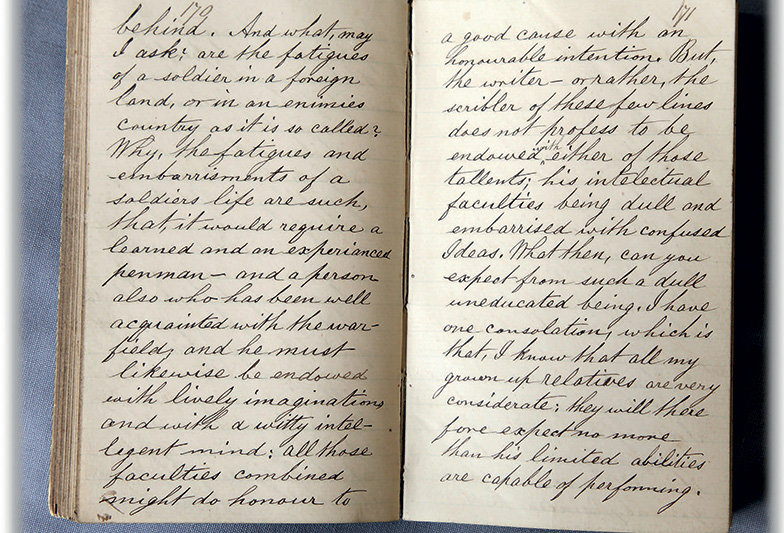 170
behind. And what, may
I ask; are the fatigues
of a soldier in a foreign
land, or in an enimies
country as it is so called?
Why, the fatigues and
embarrisments of a
soldiers life are such,
that, it would require a
learned and an experianced
penman – and a person
also who has been well
acquainted with the war-
field, and he must
likewise be endowed
with lively imaginations
and with a witty intel-
legent mind: all those
faculties combined
might do honour to
171
a good cause with an
honourable intention. But,
the writer – or rather, the
scribler of these few lines
does not profess to be
endowed with either of those
tallents; his intelectual
faculties being dull and
embarrised with confused
Ideas. What then, can you
expect from such a dull
uneducated being. I have
one consolation, which is
that, I know that all my
grown up relatives are very
considerate; they will there
fore expect no more
than his limited abilities
are capable of performing.